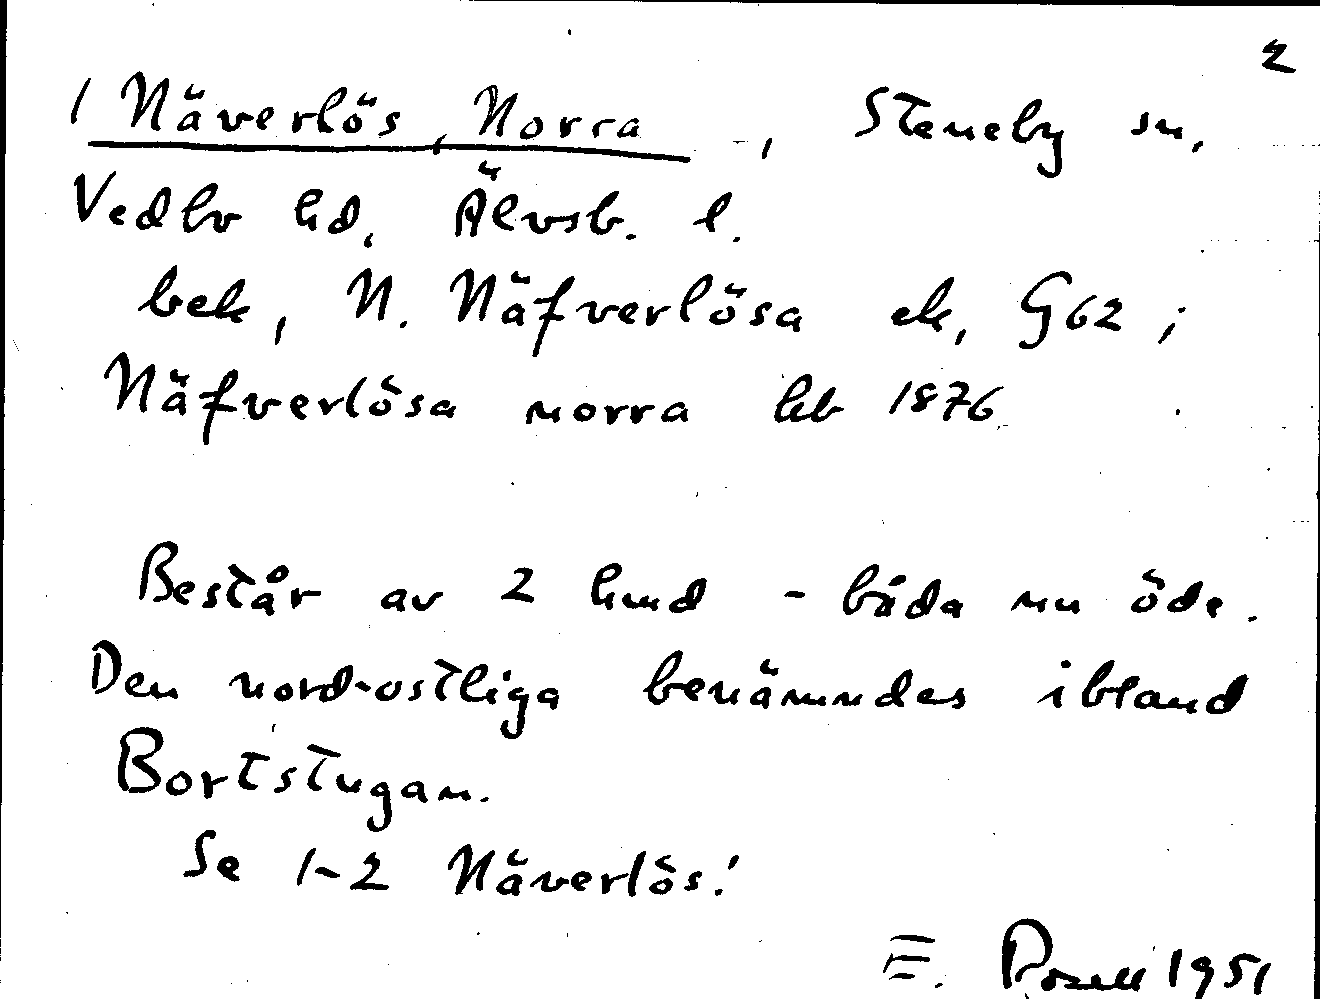 2
1 Näverlös, Norra -, Steneby sn,
Vedbo hd, Älvsb. l.
bek, N. Näfverlösa ek, G62;
Näfverlösa norra hb 1876
Består av 2 hmd - båda nu öde.
Den nord-ostliga benämndes ibland
Bortstugan.
Se 1-2 Näverlös!
E. Rosell 1951